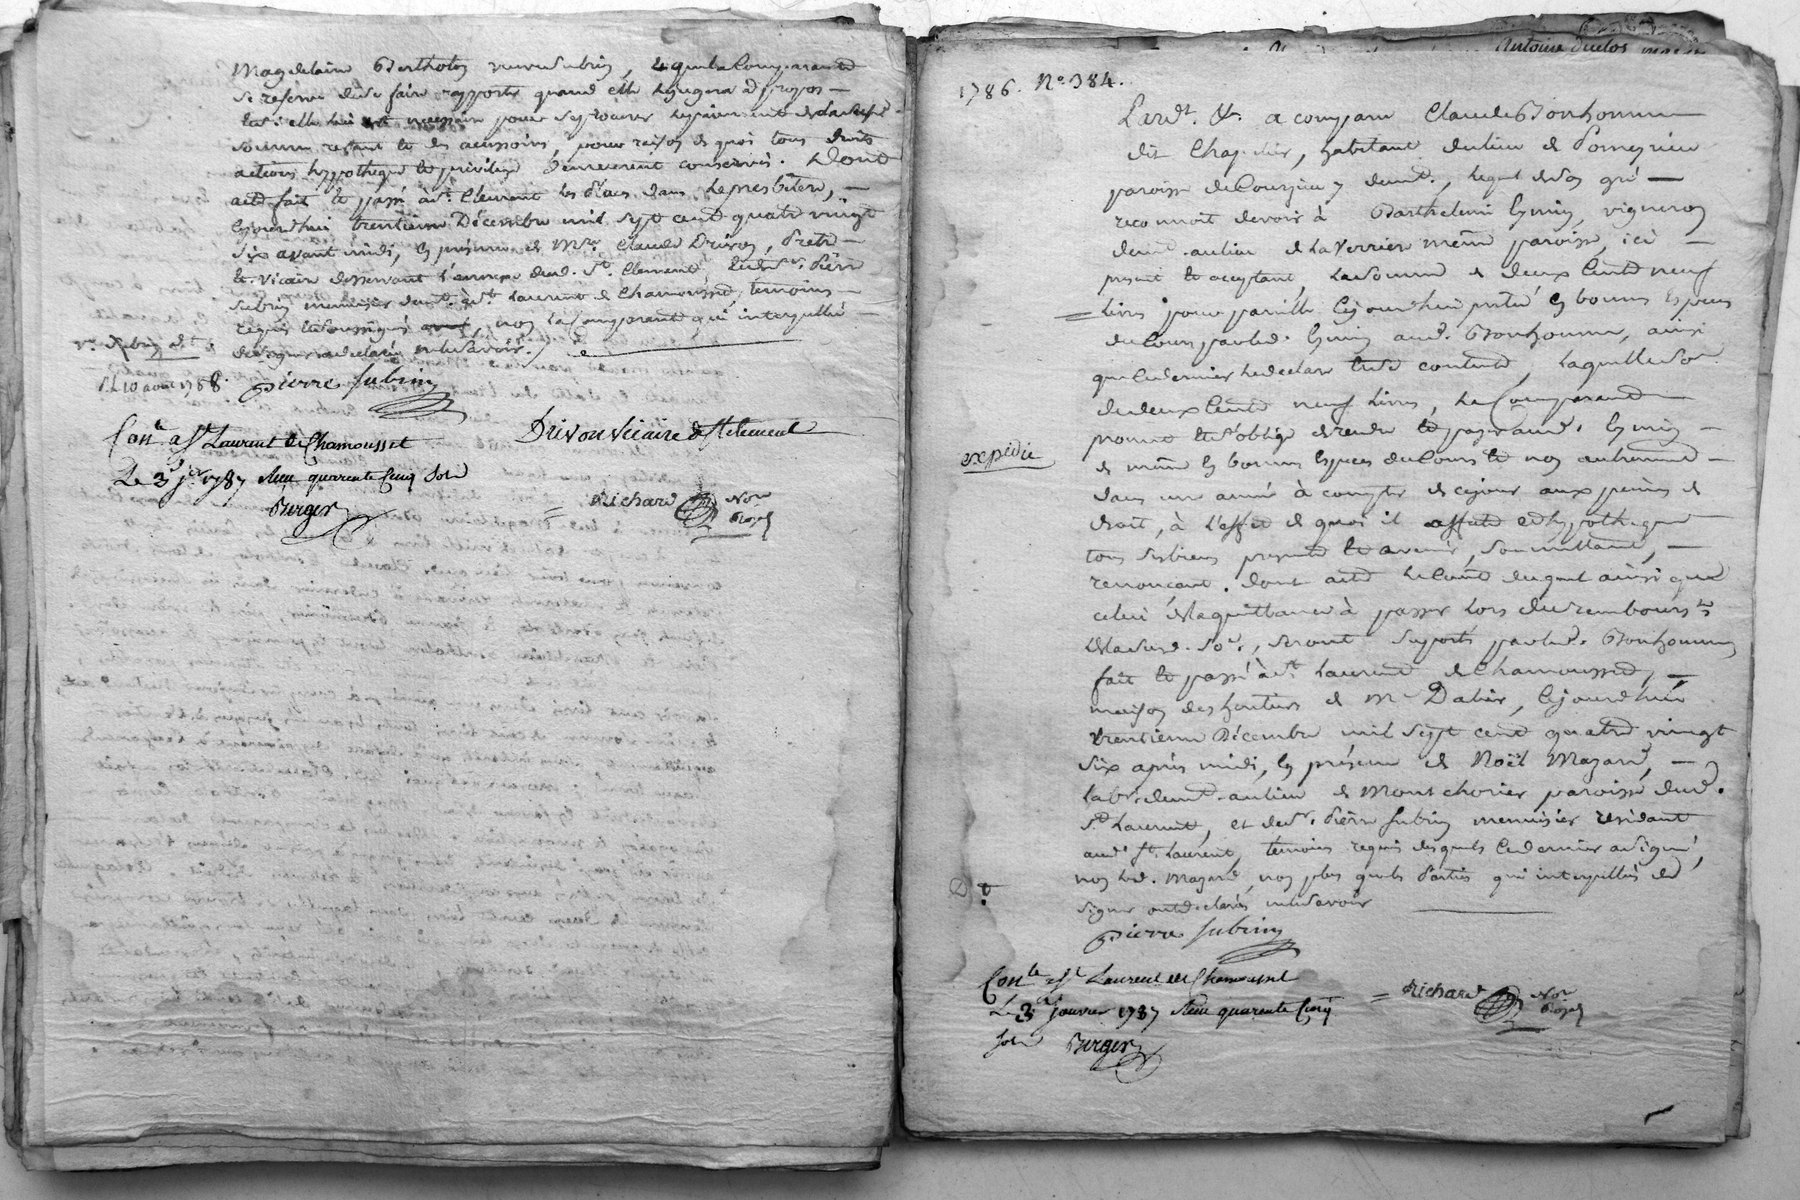 Magdelaine Bertholon veuve Subrin, lequel la Comparante
se réserve de se faire rapporter quand elle le jugera à propos
somme restant et des accessoires, pour raison de quoi tous droits
actions hypotheque et privilege demeurent conservés. Dont
acte fait et passé à St. Clement les Places dans le presbitere,
Cejourdhui trentieme Décembre mil sept cent quatre vingt
six avant midi, en présence de Mre. Claude Drivon, Prêtre
et Vicaire desservant l'annexe dud. St. Clement, et de Sr. Pierre
Subrin menuisier demt. à St. Laurent de Chamousset, temoins
requis et soussignés, non la Comparante qui interpellée
de signer a déclaré ne le savoir.
Le 10 aout 1788.
pierre Subrin
Drivon Vicaire de st clement
Conlé a St Laurent de Chamousset
Le 3 jer 1787 Reçu quarente Cinq sols
Berger
Richard Nore Royal
Antoine Duclos
1786. No. 384.
Pardt. &c. a comparu Claude Bonhomme
dit Chapelier, habitant du lieu de Pomeyrieu
paroisse de Courzieu y demt., lequel de son gré
reconnoit devoir à Barthelemi Gemin, vigneron
demt. au lieu de la Verriere même paroisse, ici
present et acceptant, la somme de deux cents neuf
Livres pour pareille Cejourdhui prêtée en bonnes Especes
du Cours par led. Gemin aud. Bonhomme, ainsi
que Ce dernier le déclare et s'en contente, laquelle so.
de deux Cents neuf Livres, le Comparant
promet et s'oblige de rendre et payer aud. Gemin
expédié
de même en bonnes Especes du Cours et non autrement
dans une année à compter de ce jour aux peines de
droit, à l'effet de quoi il affecte et hypotheque
tous ses biens presents et avenir, soumettant,
renonçant. Dont acte le Coût duquel ainsi que
celui de la quittance à passer lors du rembours.t
de lad. So.e, seront suportés par led. Bonhomme
fait et passé à St. Laurent de Chamousset,
maison des heritiers de Mr Dalier, Cejourdhui
trentieme Décembre mil sept cent quatre vingt
six après midi, en présence de Noël Mazard,
labr. demt. au lieu de Montchorier paroisse dud.
St. Laurent, et de Sr. Pierre Subrin menuisier residant
aud. St. Laurent, temoins requis desquels Ce dernier a signé,
non led. Mazard, non plus que les Parties qui interpellés de
signer ont déclaré ne le savoir
pierre Subrin
Conlé a St Laurent de Chamousset
Le 3 janvier 1787 Reçu quarente Cinq
sols Berger
Richard Nore Royal